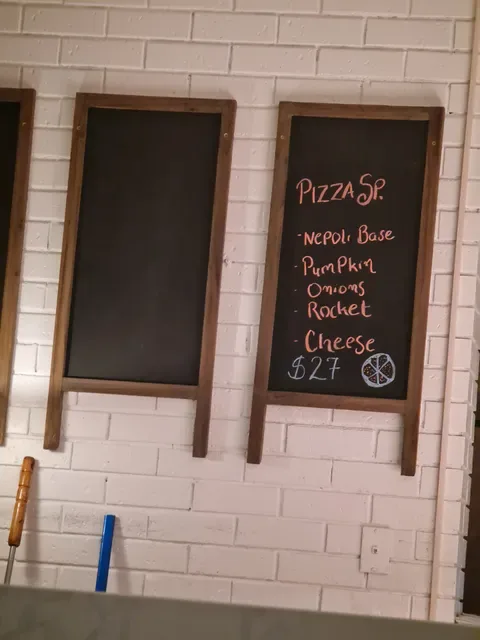 PIZZA SP.
- NePOLi Base
- PumPkin
- Onions
- Rocket
- Cheese
$27